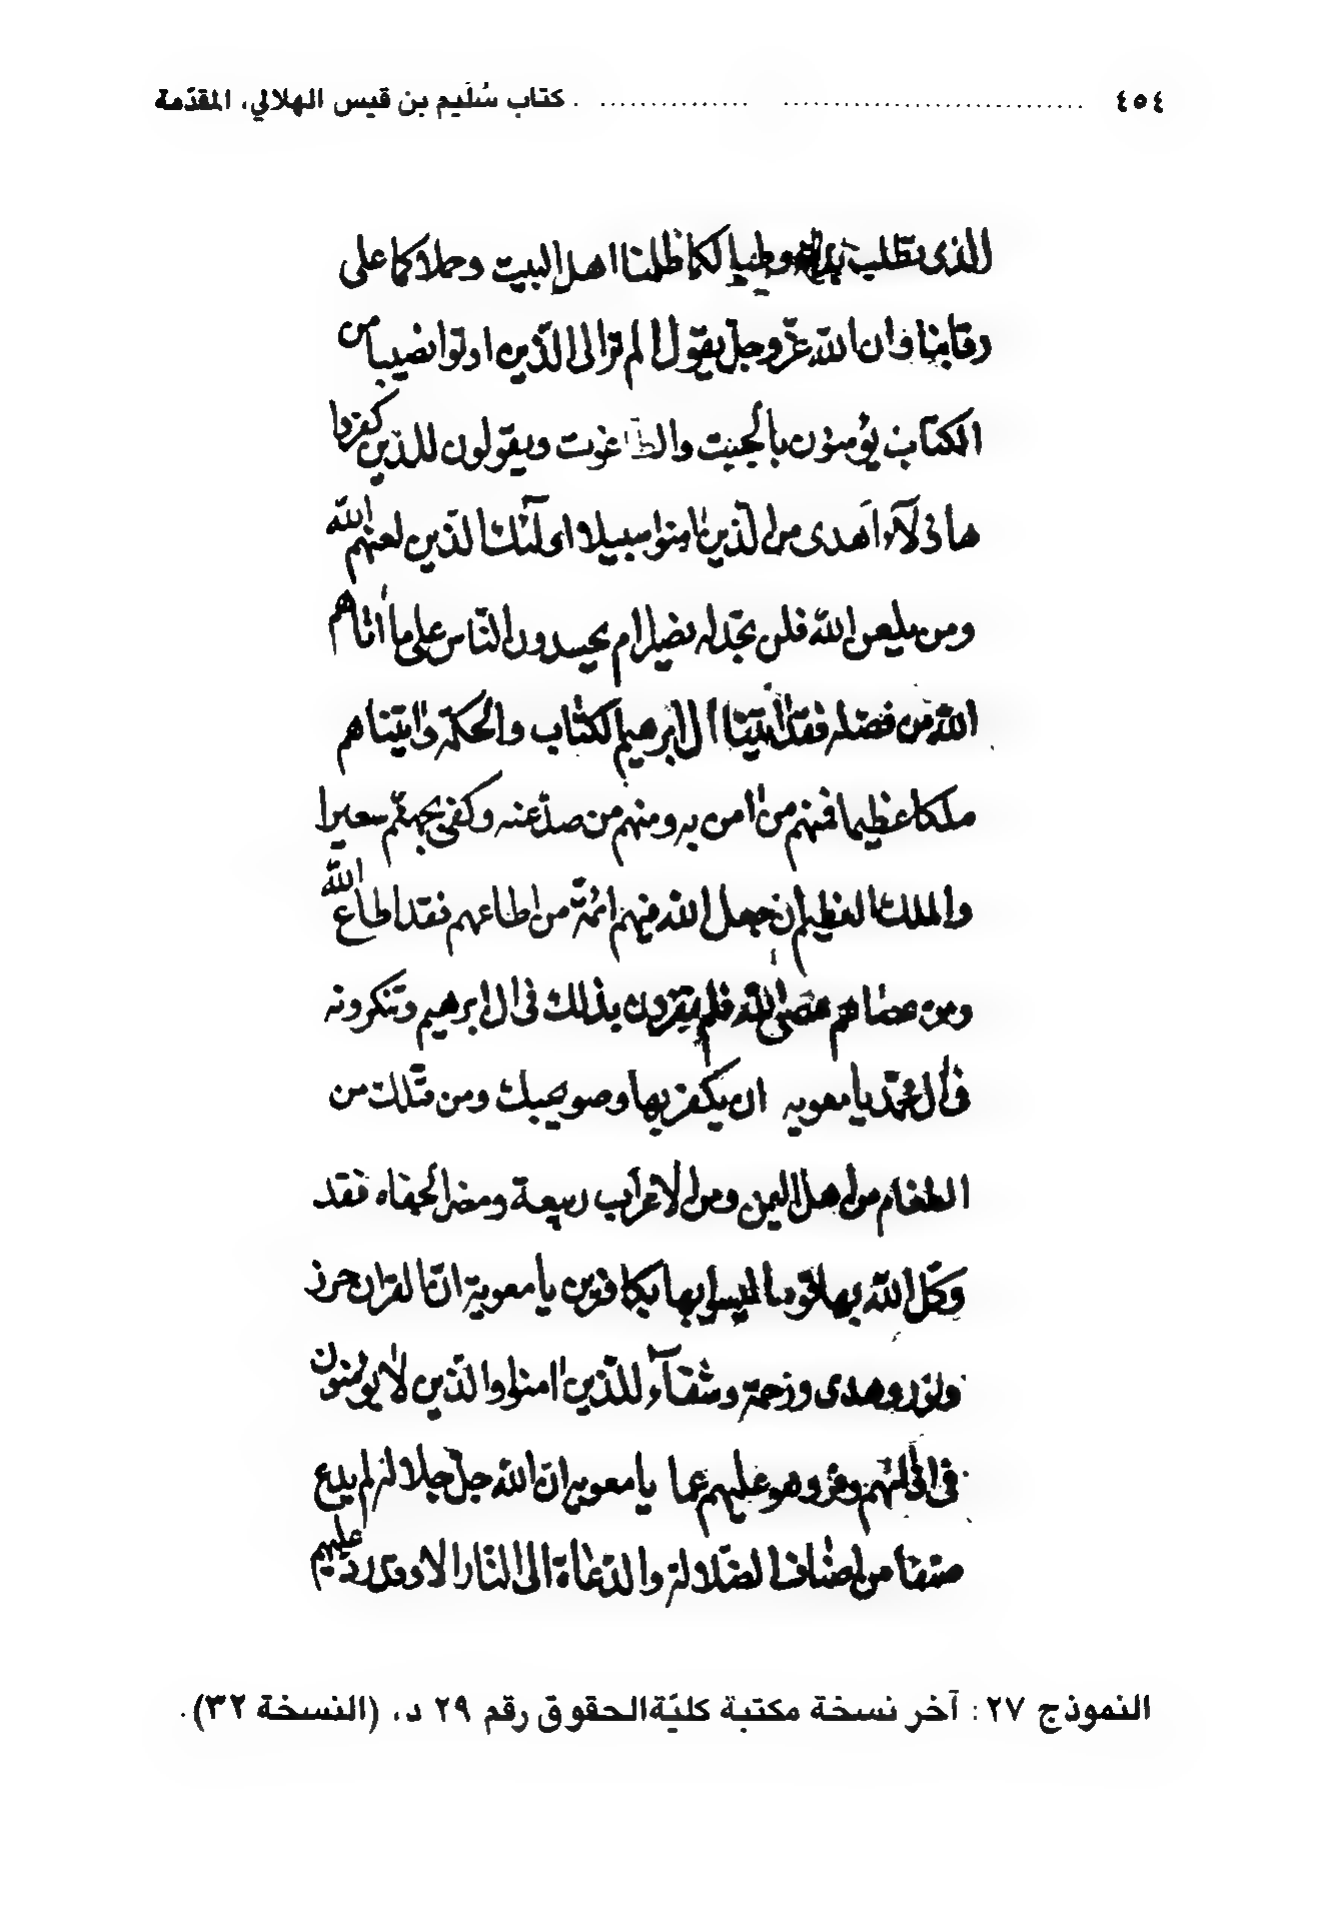 ٤٥٤ ........ كتاب سُلَيم بن قيس الهلالي، المقدّمة
الذى تطلب وطيبا لكما ظلمنا اهل البيت وحملاكما على
رقابنا وان الله عزّ وجلّ يقول الم تر الى الذين اوتوا نصيبا من
الكتاب يؤمنون بالجبت والطاغوت ويقولون للذين كفروا
هاؤلآء اهدى من الذين اٰمنوا سبيلا اولٓئك الذين لعنهم الله
ومن يلعن الله فلن تجد له نصيرا ام يحسدون الناس على ما اٰتاهم
الله من فضله فقد اٰتينا اٰل ابرهيم الكتاب والحكمة واٰتيناهم
ملكا عظيما فمنهم من اٰمن به ومنهم من صدّ عنه وكفى بجهنّم سعيرا
والملك العظيم ان جعل الله فيهم ائمّة من اطاعهم فقد اطاع الله
ومن عصاهم عصى الله فلم يقرون بذلك فى اٰل ابرهيم وتنكرونه
فى اٰل محمّد يا معويه ان يكفر بها وصويحبك ومن قبلك من
الطغام من اهل اليمن ومن الاعراب ربيعة ومضر الجفاه فقد
وكّل الله بها قوما ليسوا بها بكافرين يا معوية انّ القران حرز
ونور وهدى ورحمة وشفآء للذين اٰمنوا والذين لا يؤمنون
فى اٰذانهم وقر وهو عليهم عما يا معويه ان الله جلّ جلاله لم يدع
صنفا من اصناف الضلالة والدعاة الى النار الا وقد ردّ عليهم
النموذج ٢٧ : آخر نسخة مكتبة كليّة الحقوق رقم ٢٩ د، (النسخة ٣٢).